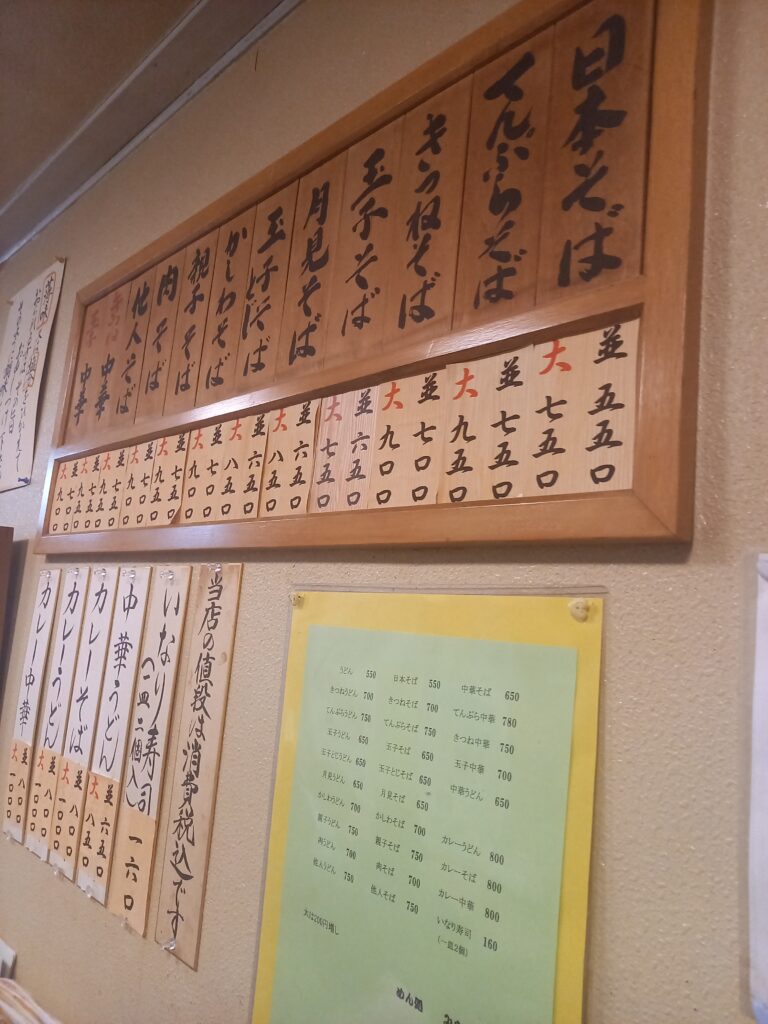 日本そば
並 五五〇
大 七五〇
てんぷらそば
並 七五〇
大 九五〇
きつねそば
並 七〇〇
大 九〇〇
玉子そば
並 六五〇
大 七五〇
月見そば
並 六五〇
大 八五〇
玉子とじそば
並 六五〇
大 八五〇
かしわそば
並 七〇〇
大 九〇〇
親子そば
並 七五〇
肉そば
並 七〇〇
大 九〇〇
他人そば
並 七五〇
大 九五〇
中華
並 七五〇
大 九五〇
中華
並 七〇〇
大 九〇〇
当店の値段は消費税込です
いなり寿司 (一皿二個入) 一六〇
中華うどん 並 六五〇 大 八五〇
カレーそば 並 八〇〇 大 一〇〇〇
カレーうどん 並 八〇〇 大 一〇〇〇
カレー中華 並 八〇〇 大 一〇〇〇
うどん 550
きつねうどん 700
てんぷらうどん 750
玉子うどん 650
玉子とじうどん 650
月見うどん 650
かしわうどん 700
親子うどん 750
肉うどん 700
他人うどん 750
大は200円増し
日本そば 550
きつねそば 700
てんぷらそば 750
玉子そば 650
玉子とじそば 650
月見そば 650
かしわそば 700
親子そば 750
肉そば 700
他人そば 750
中華そば 650
てんぷら中華 780
きつね中華 750
玉子中華 700
中華うどん 650
カレーうどん 800
カレーそば 800
カレー中華 800
いなり寿司 160
(一皿2個)
めん処